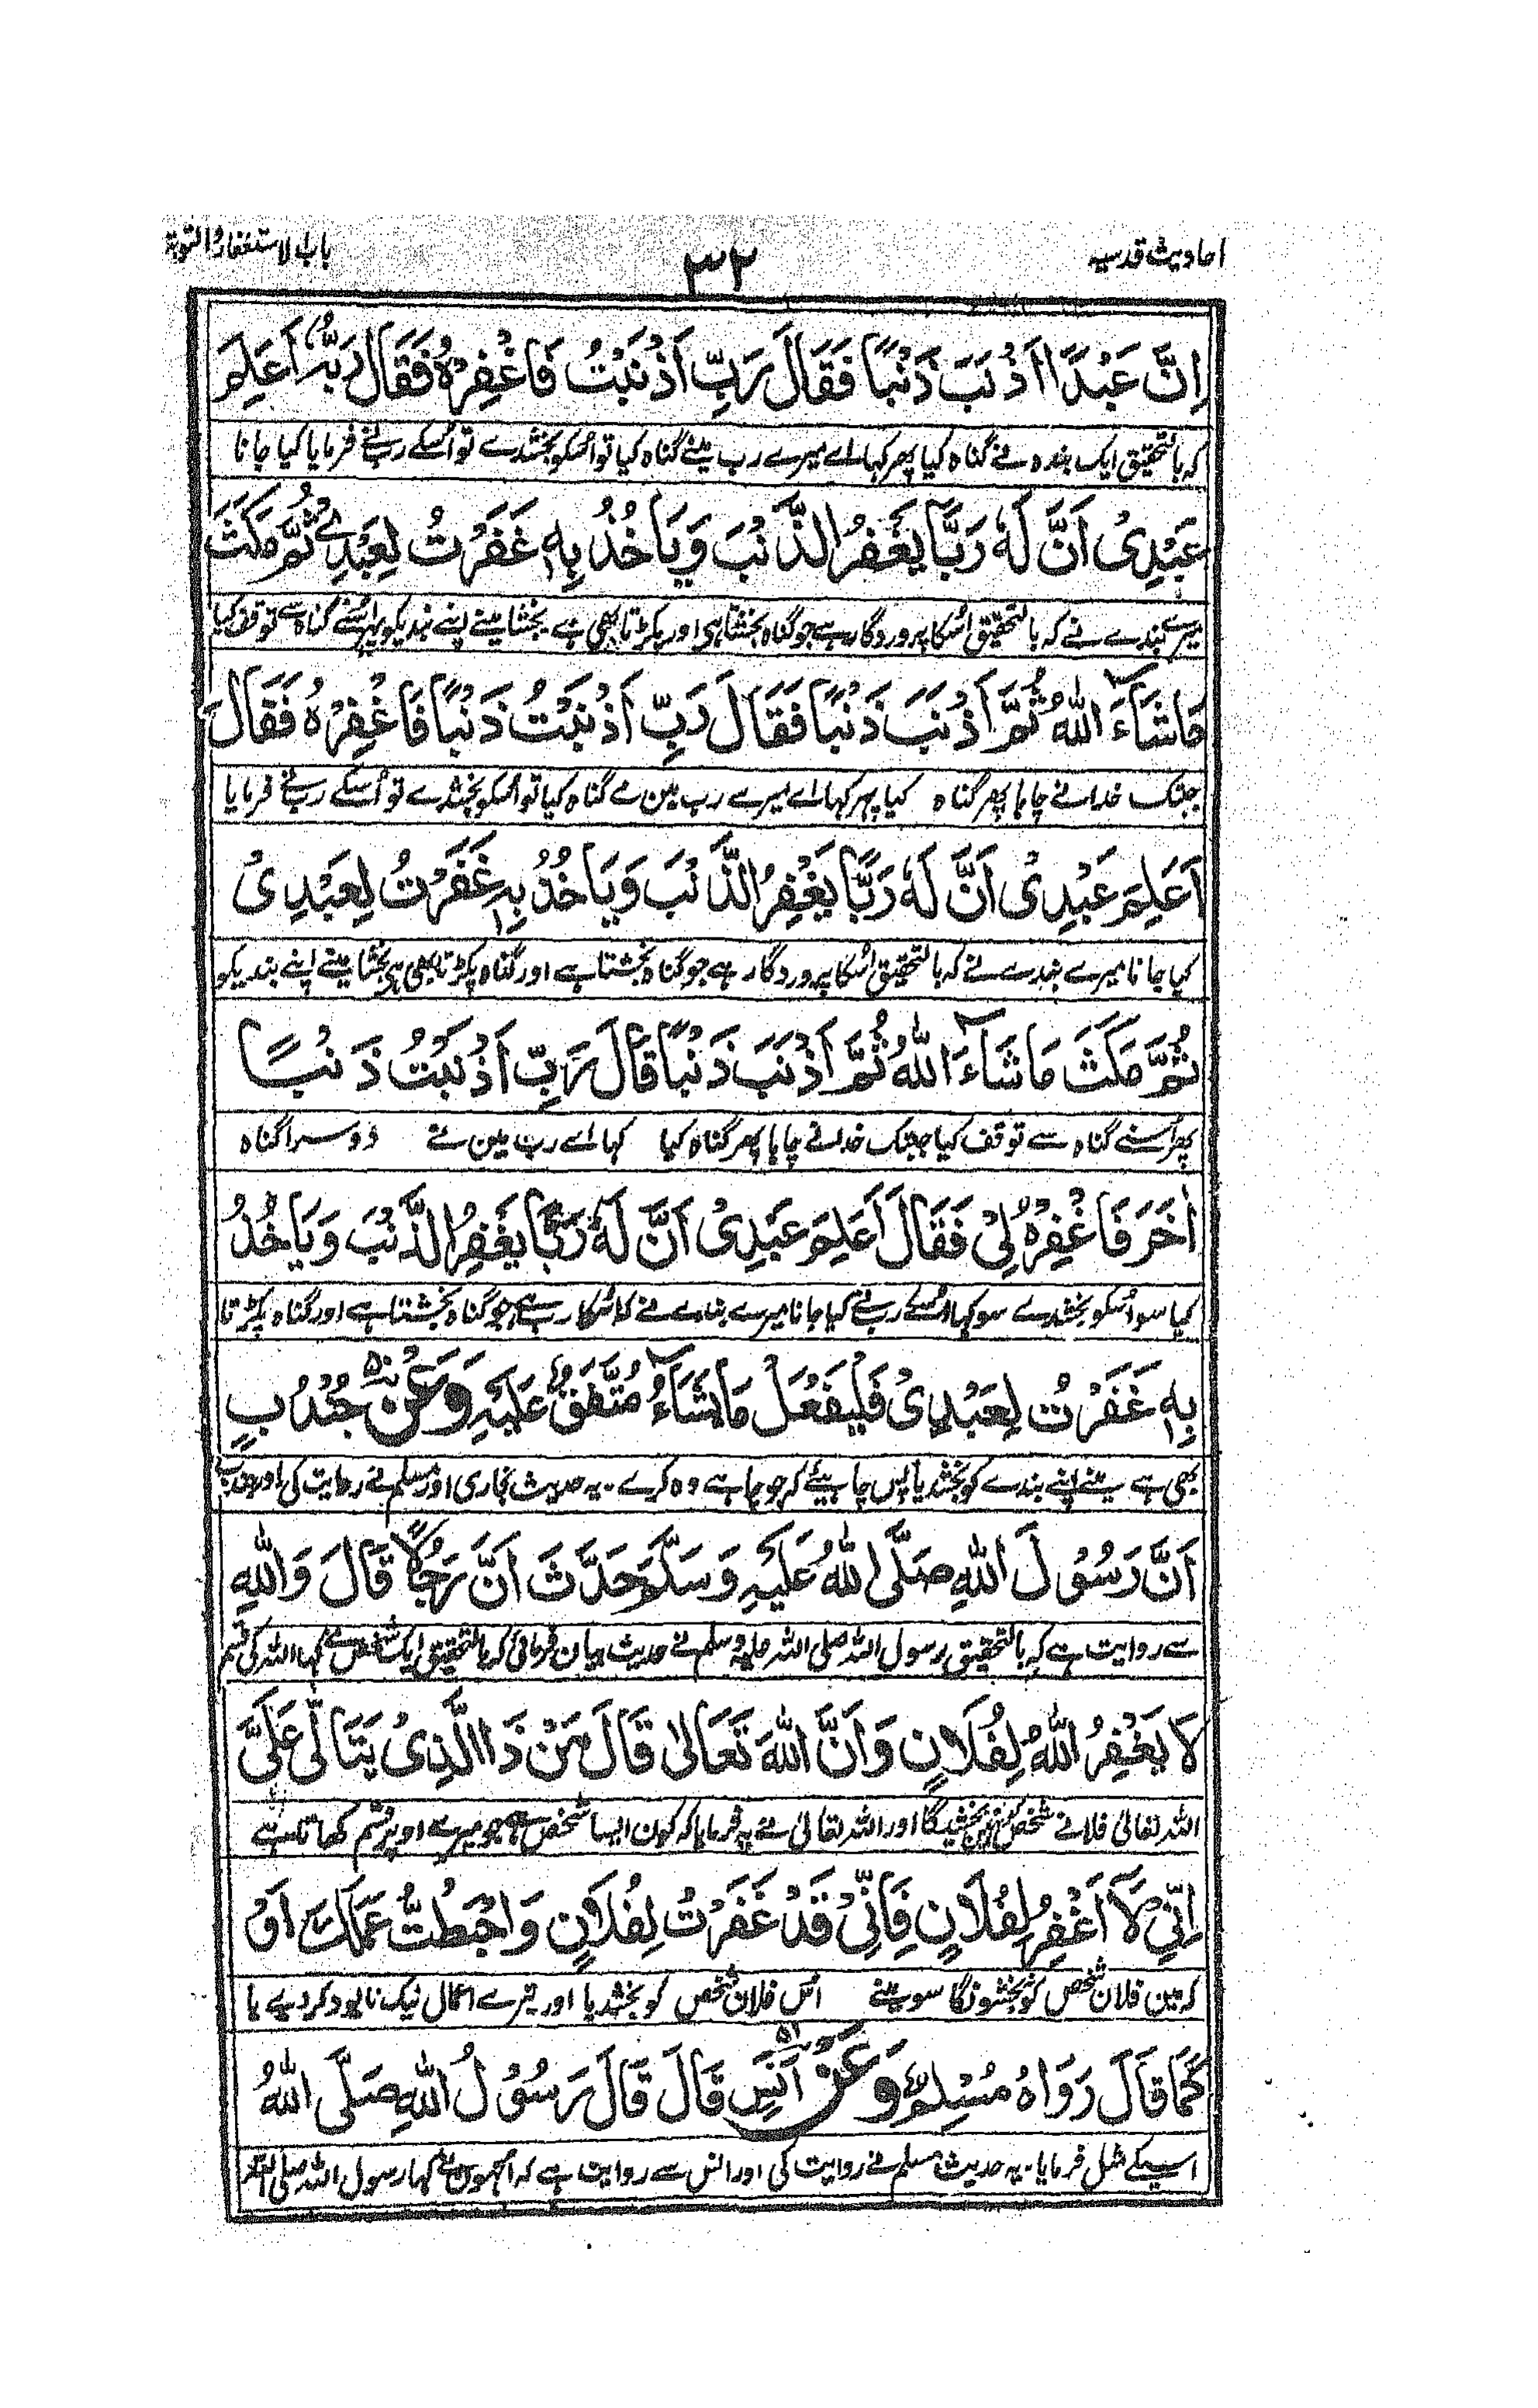 احادیث قدسیہ
۳۲
باب الاستغفار والتوبة
اِنَّ عَبْدًا اَذْنَبَ ذَنْبًا فَقَالَ رَبِّ اَذْنَبْتُ فَاغْفِرْهُ فَقَالَ رَبُّهٗ اَعَلِمَ
کہ بالتحقیق ایک بندہ نے گناہ کیا پھر کہا اے میرے رب مینے گناہ کیا تو اسکو بخشدے تو اسکے رب نے فرمایا کیا جانا
عَبْدِیْ اَنَّ لَهٗ رَبًّا یَغْفِرُ الذَّنْبَ وَیَاْخُذُ بِهٖ غَفَرْتُ لِعَبْدِیْ ثُمَّ مَکَثَ
میرے بندے نے کہ بالتحقیق اسکا پروردگار ہے جو گناہ بخشتا ہی اور پکڑتا بھی ہے بخشا مینے اپنے بندیکو پھر اسنے گناہ سے توقف کیا
مَاشَآءَ اللّٰهُ ثُمَّ اَذْنَبَ ذَنْبًا فَقَالَ رَبِّ اَذْنَبْتُ ذَنْبًا فَاغْفِرْهُ فَقَالَ
جبتک خدا نے چاہا پھر گناہ کیا پہر کہا اے میرے رب مین نے گناہ کیا تو اسکو بخشدے تو اُسکے رب نے فرمایا
اَعَلِمَ عَبْدِیْ اَنَّ لَهٗ رَبًّا یَغْفِرُ الذَّنْبَ وَیَاْخُذُ بِهٖ غَفَرْتُ لِعَبْدِیْ
کیا جانا میرے بندے نے کہ بالتحقیق اسکا پروردگار ہے جو گناہ بخشتا ہے اور گناہ پکڑتا بھی ہی بخشا مینے اپنے بندیکو
ثُمَّ مَکَثَ مَاشَآءَ اللّٰهُ ثُمَّ اَذْنَبَ ذَنْبًا قَالَ رَبِّ اَذْنَبْتُ ذَنْبًا
پھر اُسنے گناہ سے توقف کیا جبتک خدا نے چاہا پھر گناہ کیا کہا اے رب مین نے دوسرا گناہ
اٰخَرَ فَاغْفِرْهُ لِیْ فَقَالَ اَعَلِمَ عَبْدِیْ اَنَّ لَهٗ رَبًّا یَغْفِرُ الذَّنْبَ وَیَاْخُذُ
کیا سو اُسکو بخشدے سو کہا اُسکے رب نے کیا جانا میرے بندے نے کہ اُسکا رب ہے جو گناہ بخشتا ہے اور گناہ پکڑتا
بِهٖ غَفَرْتُ لِعَبْدِیْ فَلْیَفْعَلْ مَایَشَآءُ مُتَّفَقٌ عَلَیْهِ وَعَنْ ۵۰ جُنْدُبٍ
بھی ہے مینے اپنے بندے کو بخشدیا پس چاہیئے کہ جو چاہے وہ کرے۔ یہ حدیث بخاری اور مسلم نے روایت کی اور جندب
اَنَّ رَسُوْلَ اللّٰهِ صَلَّی اللّٰهُ عَلَیْهِ وَسَلَّمَ حَدَّثَ اَنَّ رَجُلًا قَالَ وَاللّٰهِ
سے روایت ہے کہ بالتحقیق رسول اللہ صلی اللہ علیہ وسلم نے حدیث بیان فرمائی کہ بالتحقیق ایک شخص نے کہا اللہ کی قسم
لَا یَغْفِرُ اللّٰهُ لِفُلَانٍ وَاَنَّ اللّٰهَ تَعَالٰی قَالَ مَنْ ذَا الَّذِیْ یَتَاَلّٰی عَلَیَّ
اللہ تعالیٰ فلانے شخص کو نہین بخشیگا اور اللہ تعالیٰ نے یہ فرمایا کہ کون ایسا شخص ہے جو میرے اوپر قسم کھاتا ہے
اِنِّیْ لَا اَغْفِرُ لِفُلَانٍ فَاِنِّیْ قَدْ غَفَرْتُ لِفُلَانٍ وَاَحْبَطْتُّ عَمَلَکَ اَوْ
کہ مین فلان شخص کو نہ بخشونگا سو مینے اس فلان شخص کو بخشدیا اور تیرے اعمال نیک نابود کردیے یا
کَمَا قَالَ رَوَاهُ مُسْلِمٌ وَعَنْ ۵۱ اَنَسٍ قَالَ قَالَ رَسُوْلُ اللّٰهِ صَلَّی اللّٰهُ
اسیکے مثل فرمایا۔ یہ حدیث مسلم نے روایت کی اور انس سے روایت ہے کہ انہوں نے کہا رسول اللہ صلی اللہ